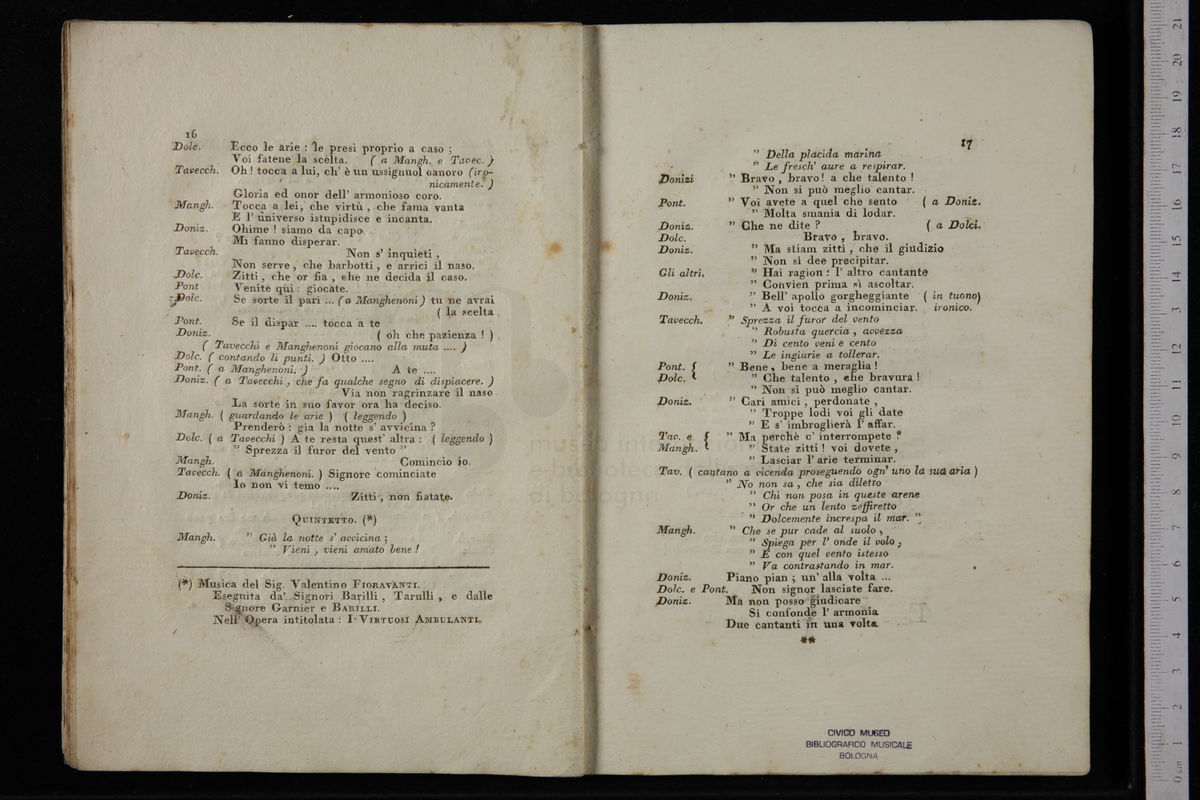 16
Dolc. Ecco le arie : le presi proprio a caso ;
Voi fatene la scelta. ( a Mangh. e Tavec. )
Tavecch. Oh ! tocca a lui, ch' è un ussignuol canoro (iro-
nicamente. )
Gloria ed onor dell' armonioso coro.
Mangh. Tocca a lei, che virtù , che fama vanta
E l' universo istupidisce e incanta.
Doniz. Ohime ! siamo da capo.
Mi fanno disperar.
Tavecch. Non s' inquieti ,
Non serve , che barbotti , e arrici il naso.
Dolc. Zitti , che or fia , che ne decida il caso.
Pont Venite qui : giocate.
Dolc. Se sorte il pari ... ( a Manghenoni ) tu ne avrai
( la scelta
Pont. Se il dispar .... tocca a te
Doniz. ( oh che pazienza ! )
( Tavecchi e Manghenoni giocano alla muta .... )
Dolc. ( contando li punti. ) Otto ....
Pont. ( a Manghenoni. ) A te ....
Doniz. ( a Tavecchi , che fa qualche segno di dispiacere. )
Via non ragrinzare il naso
La sorte in suo favor ora ha deciso.
Mangh. ( guardando le arie ) ( leggendo )
Prenderò : gia la notte s' avvicina ?
Dolc. ( a Tavecchi ) A te resta quest' altra : ( leggendo )
" Sprezza il furor del vento "
Mangh. Comincio io.
Tavecch. ( a Manghenoni. ) Signore cominciate
Io non vi temo ....
Doniz. Zitti , non fiatate.
QUINTETTO. (*)
Mangh. " Già la notte s' avvicina ;
" Vieni , vieni amato bene !
(*) Musica del Sig. Valentino FIORAVANTI.
Eseguita da' Signori Barilli , Tarulli , e dalle
Signore Garnier e BARILLI.
Nell' Opera intitolata : I VIRTUOSI AMBULANTI.
17
" Della placida marina
" Le fresch' aure a respirar.
Donizi " Bravo , bravo ! a che talento !
" Non si può meglio cantar.
Pont. " Voi avete a quel che sento ( a Doniz.
" Molta smania di lodar.
Doniz. " Che ne dite ? ( a Dolci.
Dolc. Bravo , bravo.
Doniz. " Ma stiam zitti , che il giudizio
" Non si dee precipitar.
Gli altri. " Hai ragion : l' altro cantante
" Convien prima si ascoltar.
Doniz. " Bell' apollo gorgheggiante ( in tuono)
" A voi tocca a incominciar. ironico.
Tavecch. " Sprezza il furor del vento
" Robusta quercia , avvezza
" Di cento veni e cento
" Le ingiurie a tollerar.
Pont. { " Bene , bene a meraglia !
Dolc. { " Che talento , che bravura !
" Non si può meglio cantar.
Doniz. " Cari amici , perdonate ,
" Troppe lodi voi gli date
" E s' imbroglierà l' affar.
Tav. e { " Ma perchè c' interrompete ?
Mangh. { " State zitti ! voi dovete ,
" Lasciar l' arie terminar.
Tav. ( cantano a vicenda proseguendo ogn' uno la sua aria )
" No non sa , che sia diletto
" Chi non posa in queste arene
" Or che un lento zeffiretto
" Dolcemente increspa il mar. "
Mangh. " Che se pur cade al suolo ,
" Spiega per l' onde il volo ,
" E con quel vento istesso
" Va contrastando in mar.
Doniz. Piano pian ; un' alla volta ...
Dolc. e Pont. Non signor lasciate fare.
Doniz. Ma non posso giudicare
Si confonde l' armonia
Due cantanti in una volta.
**
CIVICO MUSEO
BIBLIOGRAFICO MUSICALE
BOLOGNA